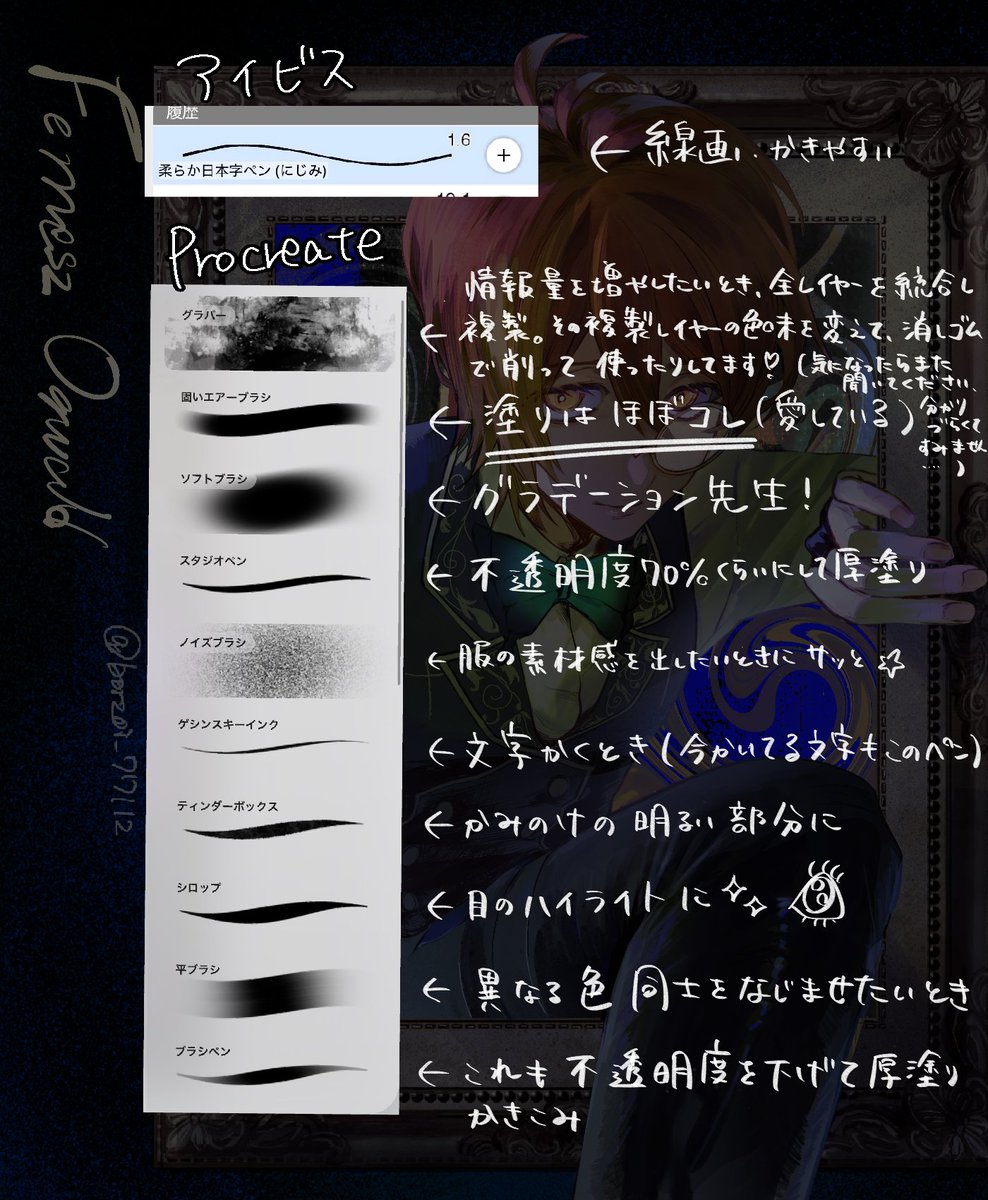 アイビス
履歴
1.6
+
柔らか日本字ペン (にじみ)
← 線画、かきやすい
Procreate
グラバー
情報量を増やしたいとき、全レイヤーを統合し
← 複製。その複製レイヤーの色味を変えて、消しゴム
で削って 使ったりしてます♡ (気になったらまた
聞いてください、
分かり
づらくて
すみません
…)
固いエアーブラシ
← 塗りは ほぼコレ (愛している)
ソフトブラシ
← グラデーション先生!
スタジオペン
← 不透明度70%くらいにして厚塗り
ノイズブラシ
← 服の素材感を出したいときに サッと
ゲシンスキーインク
← 文字かくとき (今かいてる文字もこのペン)
ティンダーボックス
← かみのけの 明るい部分に
シロップ
← 目のハイライトに
平ブラシ
← 異なる色 同士をなじませたいとき
ブラシペン
← これも 不透明度を下げて厚塗り
かきこみ